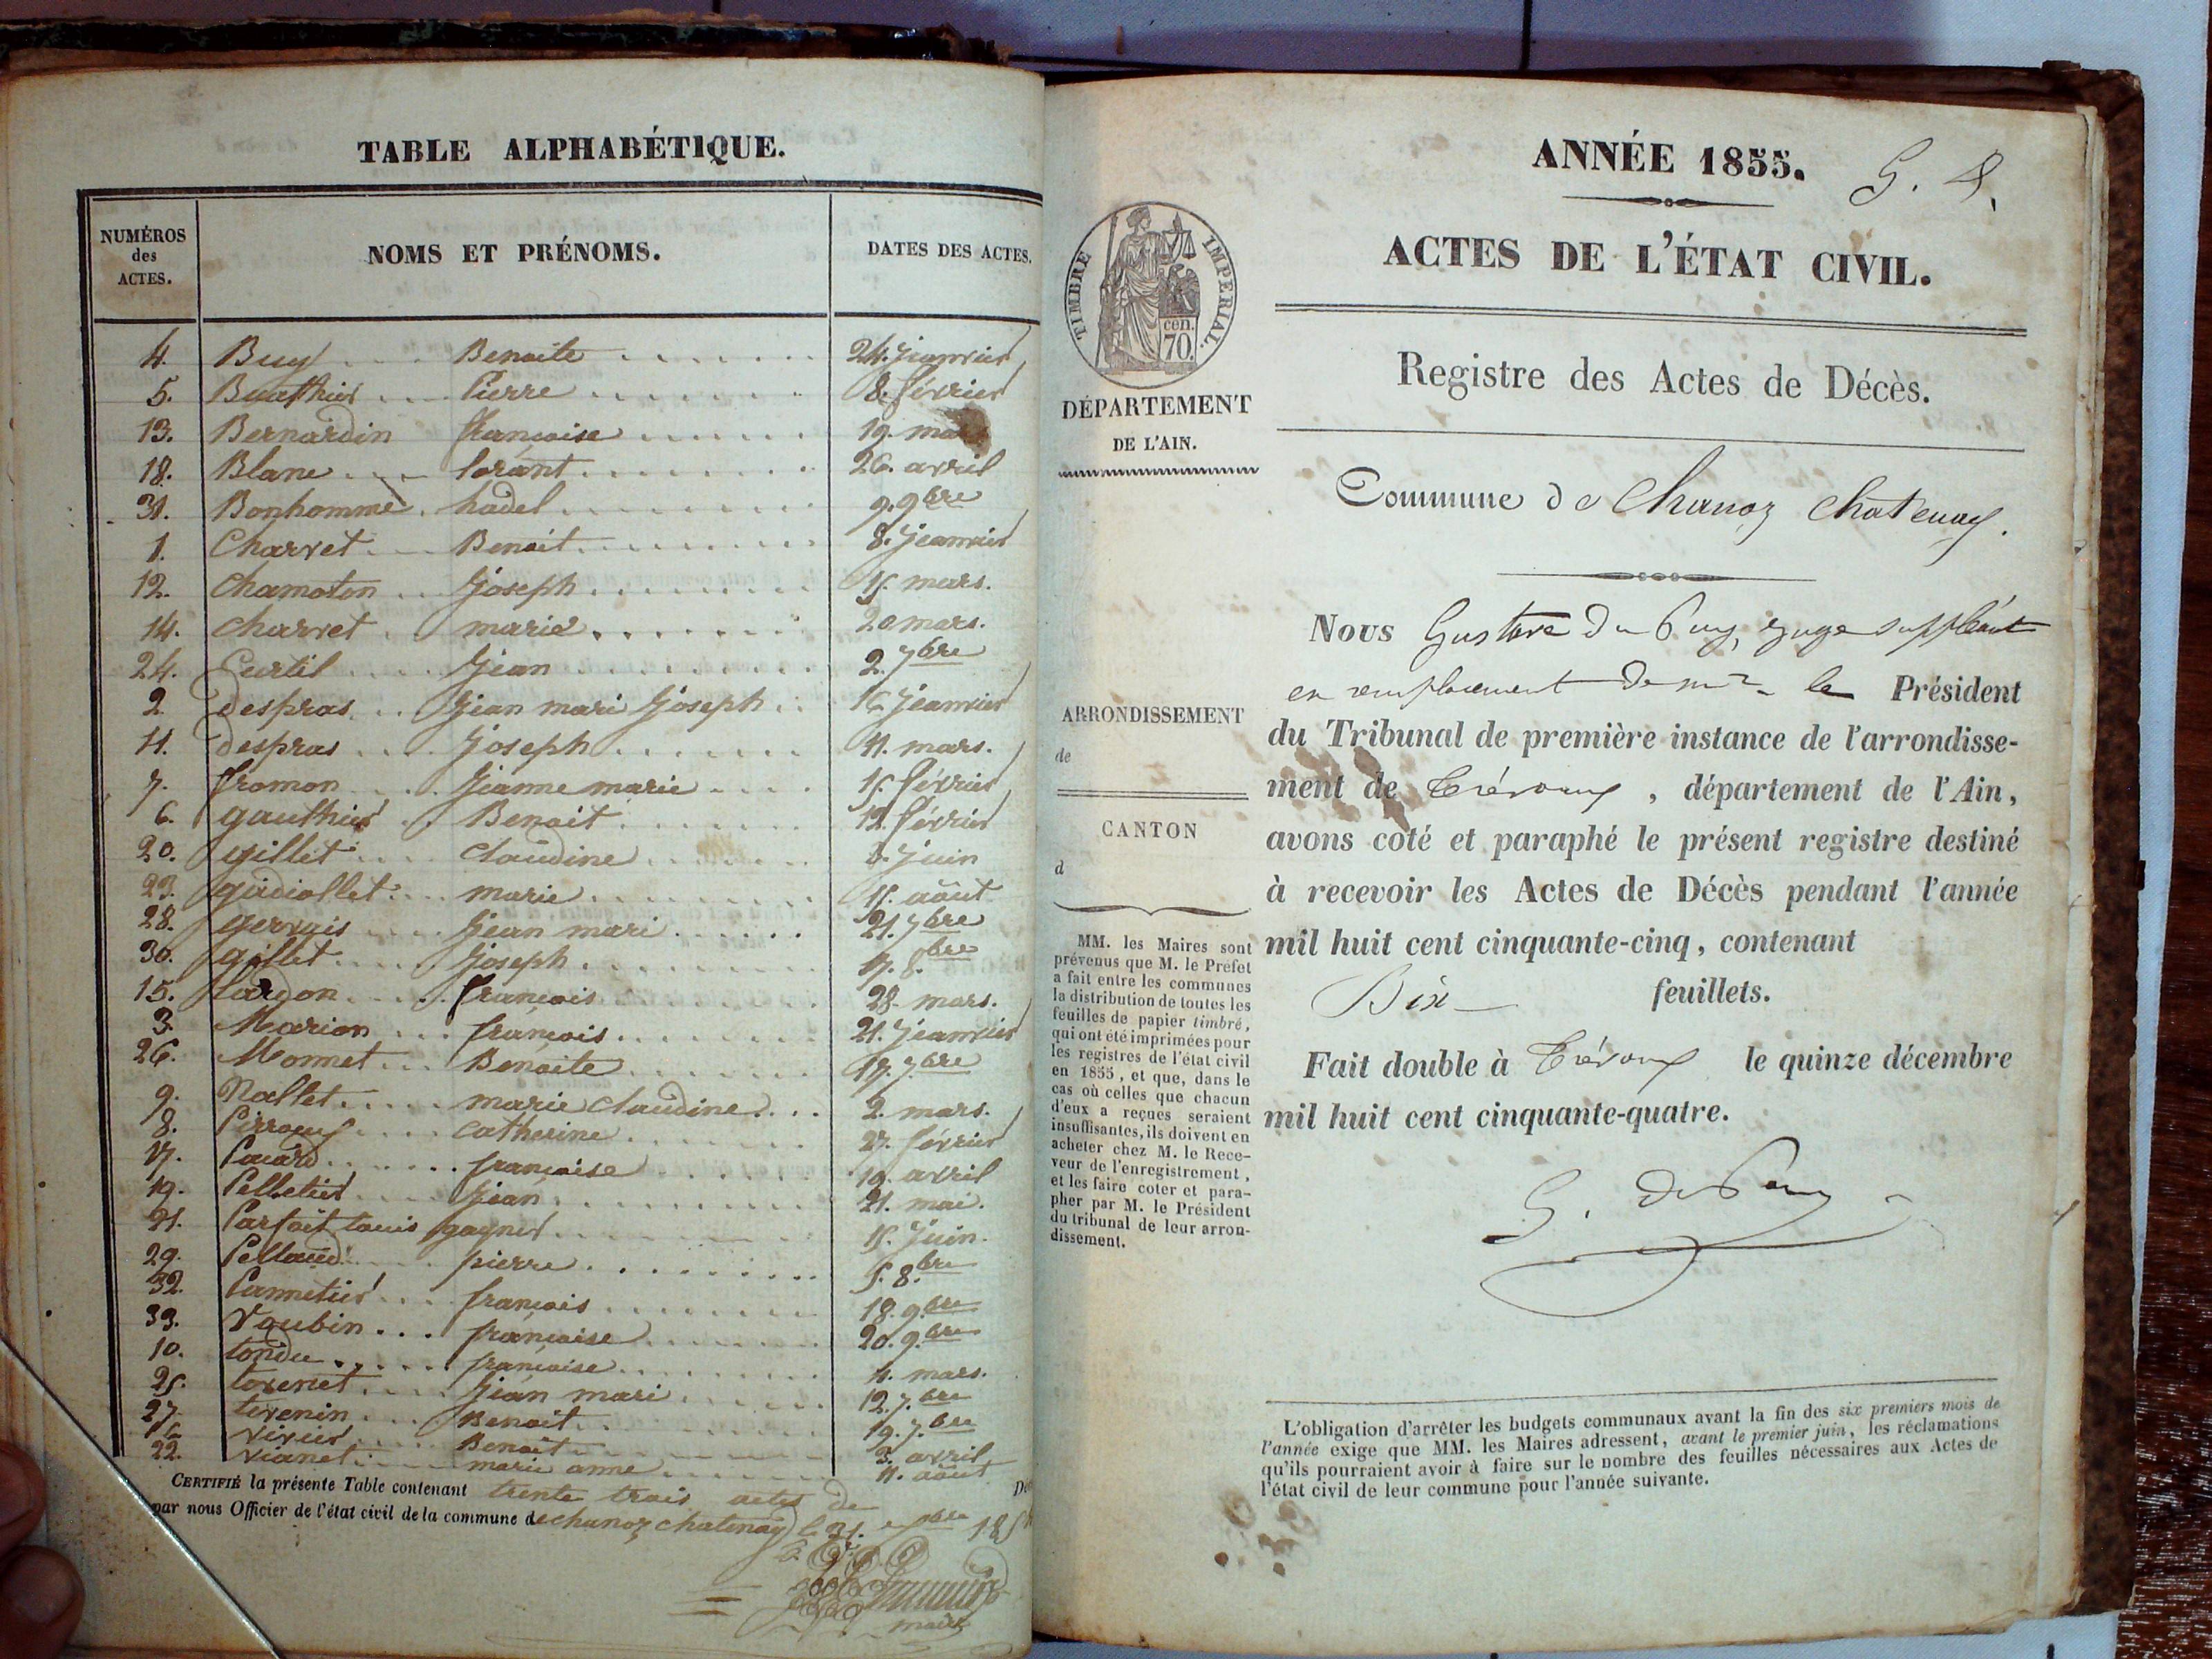 TABLE ALPHABÉTIQUE.
NUMÉROS
des
ACTES.
NOMS ET PRÉNOMS.
DATES DES ACTES.
4. Buy Benoite 24. jeanvier
5. Buathier Pierre 8. février
13. Bernardin françoise 19. mars
18. Blanc lorant 26. avril
31. Bonhomme hadel 9. 9bre
1. Charvet Benoit 8. jeanvier
12. Chamoton Joseph 15. mars.
14. Charvet marie 20 mars.
24. Curtil Jean 2. 7bre
2. despras Jean mari Joseph 16 jeanvier
11. despras Joseph 11. mars.
7. fromon Jeanne marie 15. février
6. gauthier Benoit 12. février
20. gillet Claudine juin
23. gudiollet marie 15. août
28. gervais Jean mari 21. 7bre
30. gillet Joseph 17. 8bre
15. lardon françois 28. mars.
3. Marion françois 21. jeanvier
26. Monnet Benoite 17. 7bre
9. Nallet marie Claudine 2. mars.
8. Perroux Catherine 27. février
17. Pacard françoise 19. avril
19. Pelletier Jean 21. mai.
21. Parfait louis gagner 15. Juin.
29. Pelland pierre 5. 8bre
32. Pannetier françois 18. 9bre
33. Vaubin françoise 20. 9bre
10. tondu françoise 11. mars.
25. torenet Jean mari 12. 7bre
27. tevenin Benoit 19. 7bre
16 vivier Benoit 3. avril
22. vianet marie anne 11. août
CERTIFIÉ la présente Table contenant trente trois actes de
par nous Officier de l'état civil de la commune de chanoz chatenay le 31.
maire
ANNÉE 1855.
ACTES DE L'ÉTAT CIVIL.
TIMBRE IMPERIAL.
cen.
70.
Registre des Actes de Décès.
DÉPARTEMENT
DE L'AIN.
Commune de Chanoz Chatenay.
Nous Gustave Du Puy, juge suppléant
en remplacement de mr le Président
du Tribunal de première instance de l'arrondisse-
ment de Trévoux, département de l'Ain,
avons coté et paraphé le présent registre destiné
à recevoir les Actes de Décès pendant l'année
mil huit cent cinquante-cinq, contenant
Dix feuillets.
Fait double à Trévoux le quinze décembre
mil huit cent cinquante-quatre.
G. Du Puy
ARRONDISSEMENT
de
CANTON
d
MM. les Maires sont
prévenus que M. le Préfet
a fait entre les communes
la distribution de toutes les
feuilles de papier timbré,
qui ont été imprimées pour
les registres de l'état civil
en 1855, et que, dans le
cas où celles que chacun
d'eux a reçues seraient
insuffisantes, ils doivent en
acheter chez M. le Rece-
veur de l'enregistrement,
et les faire coter et para-
pher par M. le Président
du tribunal de leur arron-
dissement.
L'obligation d'arrêter les budgets communaux avant la fin des six premiers mois de
l'année exige que MM. les Maires adressent, avant le premier juin, les réclamations
qu'ils pourraient avoir à faire sur le nombre des feuilles nécessaires aux Actes de
l'état civil de leur commune pour l'année suivante.